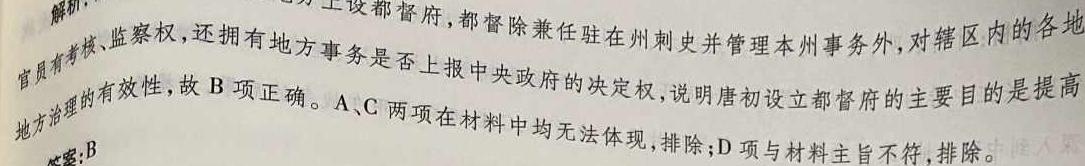 解析,上设都督府,都督除兼任驻在州刺史并管理本州事务外,对辖区内的各地
官员有考核、监察权,还拥有地方事务是否上报中央政府的决定权,说明唐初设立都督府的主要目的是提高
地方治理的有效性,故 B 项正确。A、C 两项在材料中均无法体现,排除;D 项与材料主旨不符,排除。
答案:B